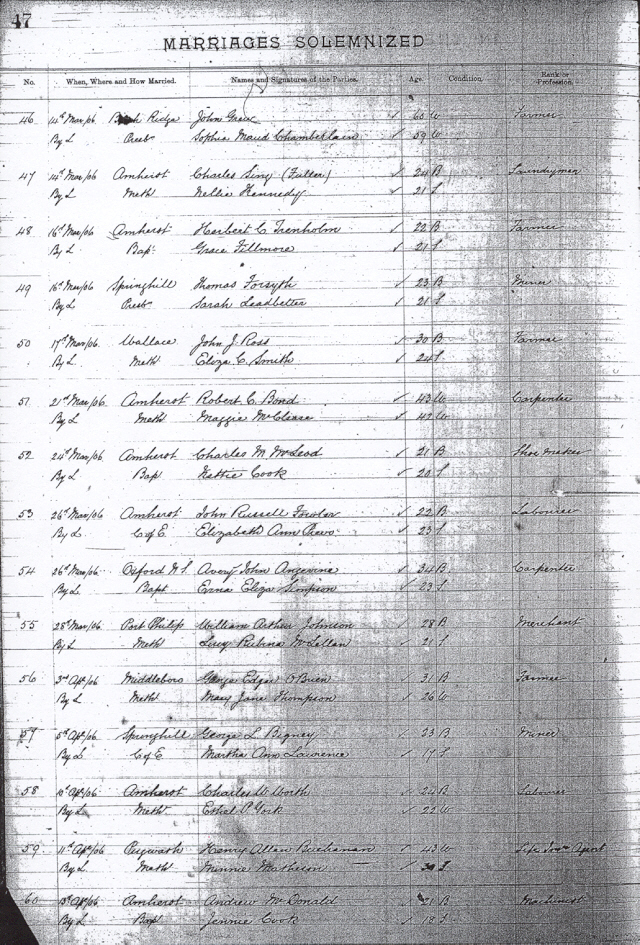 47
MARRIAGES SOLEMNIZED
No. When, Where and How Married. Names and Signatures of the Parties. Age. Condition. Rank or Profession.
46 14th Mar/06 Ridge John Grace ✓ 65 W Farmer
By L Presb Sophia Maud Chamberlain ✓ 59 W
47 14th Mar/06 Amherst Charles Sing (Fuller) ✓ 24 B Laundryman
By L Meth Nellie Kennedy ✓ 21 S
48 16th Mar/06 Amherst Herbert C Trenholm ✓ 20 B Farmer
By L Bap Grace Fillmore ✓ 21 S
49 16th Mar/06 Springhill Thomas Forsyth ✓ 23 B Miner
By L Presb Sarah Leadbetter ✓ 21 S
50 17th Mar/06 Wallace John J. Ross ✓ 30 B Farmer
By L Meth Eliza C. Smith ✓ 24 S
51 21st Mar/06 Amherst Robert C. Bond ✓ 43 W Carpenter
By L Meth Maggie McCleave ✓ 42 W
52 24th Mar/06 Amherst Charles M McLeod ✓ 21 B Shoe Maker
By L Bap Nettie Cook ✓ 20 S
53 26th Mar/06 Amherst John Russell Fowler ✓ 22 B Labourer
By L C of E Elizabeth Ann ✓ 23 S
54 26th Mar/06 Oxford N S Avery John Angevine ✓ 34 B Carpenter
By L Bapt Erma Eliza Simpson ✓ 23 S
55 28th Mar/06 Port Philip William Arthur Johnson ✓ 28 B Merchant
By L Meth Lucy Rubina McLellan ✓ 21 S
56 3rd Apr/06 Middleboro George Edgar O'Brien ✓ 31 B Farmer
By L Meth Mary Jane Thompson ✓ 26 W
57 5th Apr/06 Springhill George L Bigney ✓ 23 B Miner
By L C of E Martha Ann Lawrence ✓ 17 S
58 10th Apr/06 Amherst Charles W Worth ✓ 24 B Labourer
By L Meth Ethel P. York ✓ 22 W
59 11th Apr/06 Pugwash Henry Allan Buchanan ✓ 43 W Life Agent
By L Meth Minnie Matheson ✓ 30 S
60 13th Apr/06 Amherst Andrew McDonald ✓ 21 B Machinist
By L Bap Jennie Cook ✓ 18 S